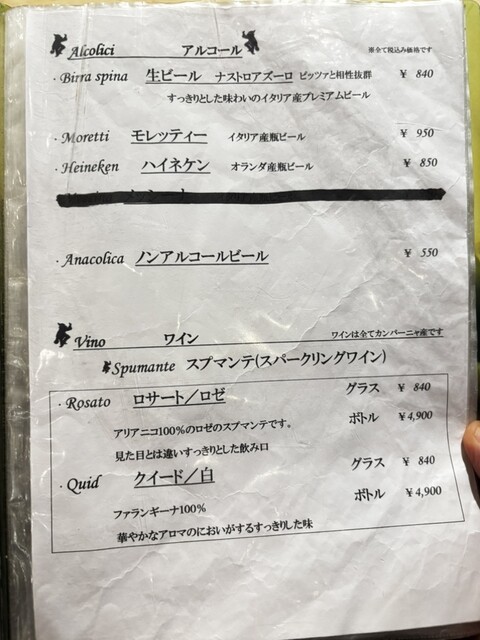 Alcolici アルコール ※全て税込み価格です
・Birra spina 生ビール ナストロアズーロ ピッツァと相性抜群 ¥ 840
すっきりとした味わいのイタリア産プレミアムビール
・Moretti モレッティー イタリア産瓶ビール ¥ 950
・Heineken ハイネケン オランダ産瓶ビール ¥ 850
・Anacolica ノンアルコールビール ¥ 550
Vino ワイン ワインは全てカンパーニャ産です
Spumante スプマンテ(スパークリングワイン)
・Rosato ロサート／ロゼ グラス ¥ 840
ボトル ¥4,900
アリアニコ100%のロゼのスプマンテです。
見た目とは違いすっきりとした飲み口
・Quid クイード／白 グラス ¥ 840
ボトル ¥4,900
ファランギーナ100%
華やかなアロマのにおいがするすっきりした味